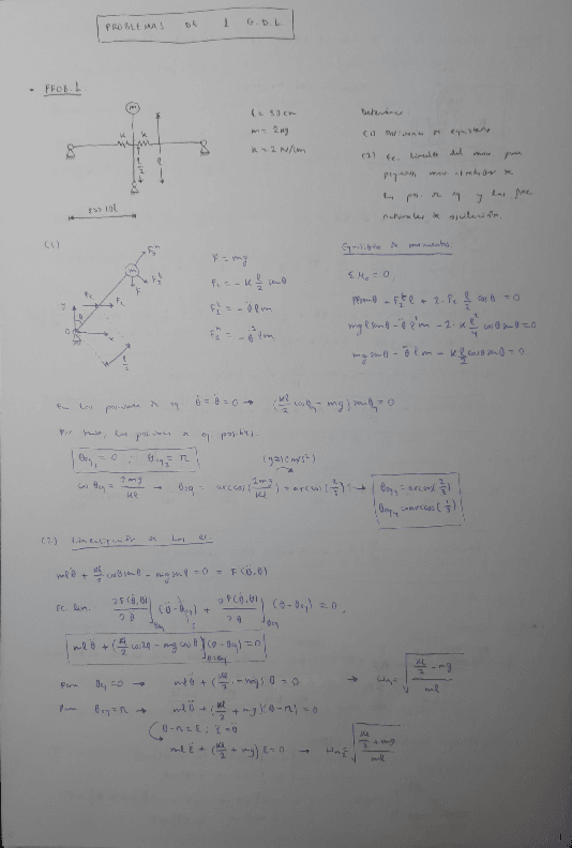 PROBLEMAS DE 1 G.D.L.
PROB. 1
m
K K
l/2
l
l = 30 cm
m = 2 kg
K = 2 N/cm
Determinar:
(1) Posiciones de equilibrio
(2) Ec. lineales del mov para
pequeños mov alrededor de
las pos. de eq y las frec
naturales de oscilación.
(1)
m
F
F = mg
F_I^t = -θ̈ l m
Equilibrio de momentos
Σ M_O = 0;
mg l senθ - θ̈ l² m - 2·K l²/4 cosθ senθ = 0
mg senθ - θ̈ l m - K l/2 cosθ senθ = 0
En las posiciones de eq θ̇ = θ̈ = 0 → (Kl/2 cosθ - mg) senθ = 0
Por tanto, las posiciones de eq posibles:
θeq₁ = 0 ; θeq₂ = π
cosθeq = 2mg/Kl → θeq = arccos(2mg/Kl) = arccos(2/3) →
θeq₃ = arccos(2/3)
(2) Linealización de las ec.
mlθ̈ + Kl/2 cosθ senθ - mg senθ = 0 = F(θ̈,θ)
Ec. lin. ∂F(θ̈,θ)/∂θ̈ |θeq (θ̈ - θ̈eq) + ∂F(θ̈,θ)/∂θ |θeq (θ - θeq) = 0;
mlθ̈ + (Kl/2 cos2θ - mg cosθ)|θ=θeq (θ - θeq) = 0
Para θeq = 0 → mlθ̈ + (Kl/2 - mg) θ = 0 → ωn₁ = √((Kl/2 - mg)/ml)
Para θeq = π → mlθ̈ + (Kl/2 + mg)(θ - π) = 0
θ - π = ε ; ε̈ = θ̈
mlε̈ + (Kl/2 + mg) ε = 0 → ωn₂ = √((Kl/2 + mg)/ml)
1